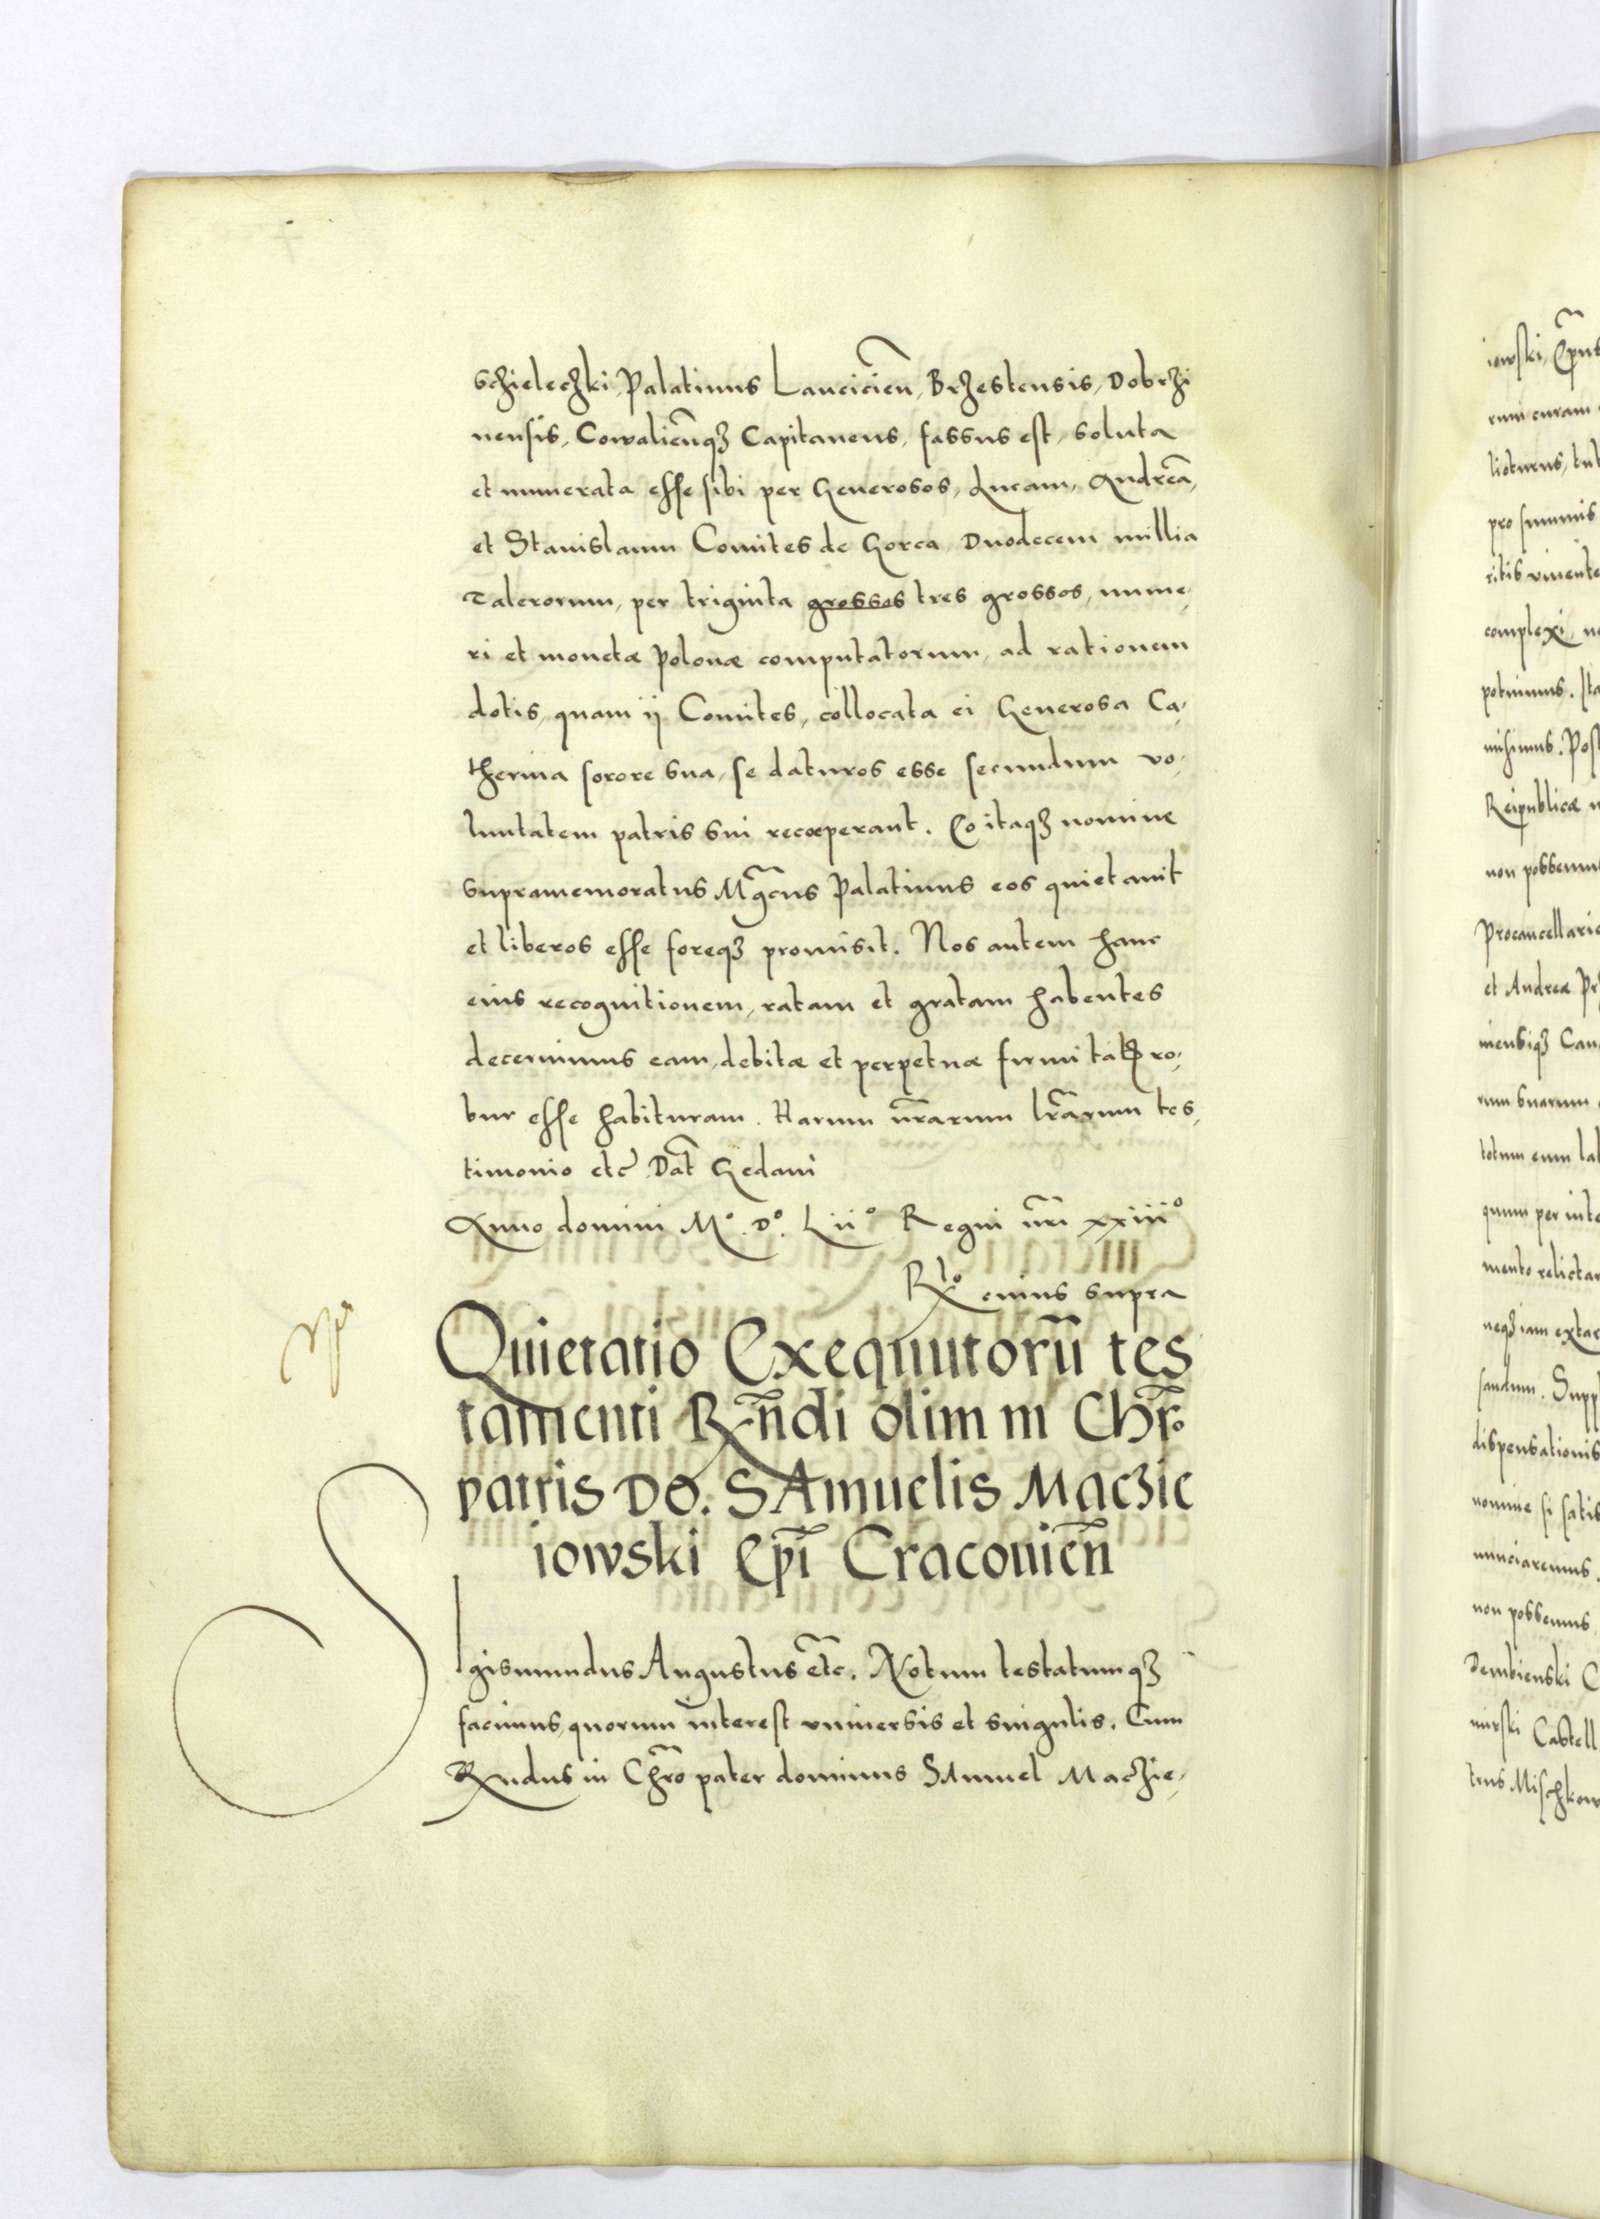 Schieleczki, Palatinus Lancicieñ, Brzestensis, Dobrzi
nensis, Cowalieñqȝ Capitaneus, fassus est, soluta
et numerata esse sibi per Generosos, Lucam, Andreã,
et Stanislaum Comites de Gorca, Duodecem millia
Talerorum, per triginta grossos tres grossos, nume,
ri et monetæ Polonæ computatorum, ad rationem
dotis, quam ij Comites, collocata ei Generosa Ca,
therina sorore sua, se daturos esse secundum vo,
luntatem patris sui recœperant. Eo itaqȝ nomine
supramemoratus Mgcũs Palatinus eos quietauit
et liberos esse foreqȝ promisit. Nos autem hanc
eius recognitionem, ratam et gratam habentes
decernimus eam, debitæ et perpetuæ firmitatis ro,
bur esse habituram. Harum nr̃arum lr̃arum tes,
timonio etc̃ Dat̃ Gedani
Anno domini M.º D.º Lijº Regni nr̃i xxiiiº
Rlº cuius supra
Quietatio Exequutorũ tes
tamenti Rñdi olim in Chr̃º
patris DO. SAmuelis Maczie
iowski Ep̃i Cracouieñ
SIgismundus Augustus etc̃. Notum testatumqȝ
facimus, quorum interest vniuersis et singulis. Cum
Rndus in Chr̃o pater dominus SAmuel Maczie,
iowski, Ep̃us
rum curam
pro summis
complexi
potuimus. sta
Reipublicæ
non possemus
Procancellari
et Andreæ
totum eum
quum per inte
mento relicta
neqȝ iam exta
dispensationis
nomine si satis
nunciaremus.
non possemus
Dembienski C
Castell
trus Mischkow